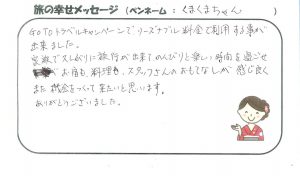 旅の幸せメッセージ（ペンネーム：くまくまちゃん）
GO TOトラベルキャンペーンでリーズナブル料金で利用する事が
出来ました。
家族で久しぶりに旅行が出来てのんびりと楽しい時間を過ごせ
お宿も料理も、スタッフさんのおもてなしが感じ良く
また機会をつくって来たいと思います。
ありがとうございました。